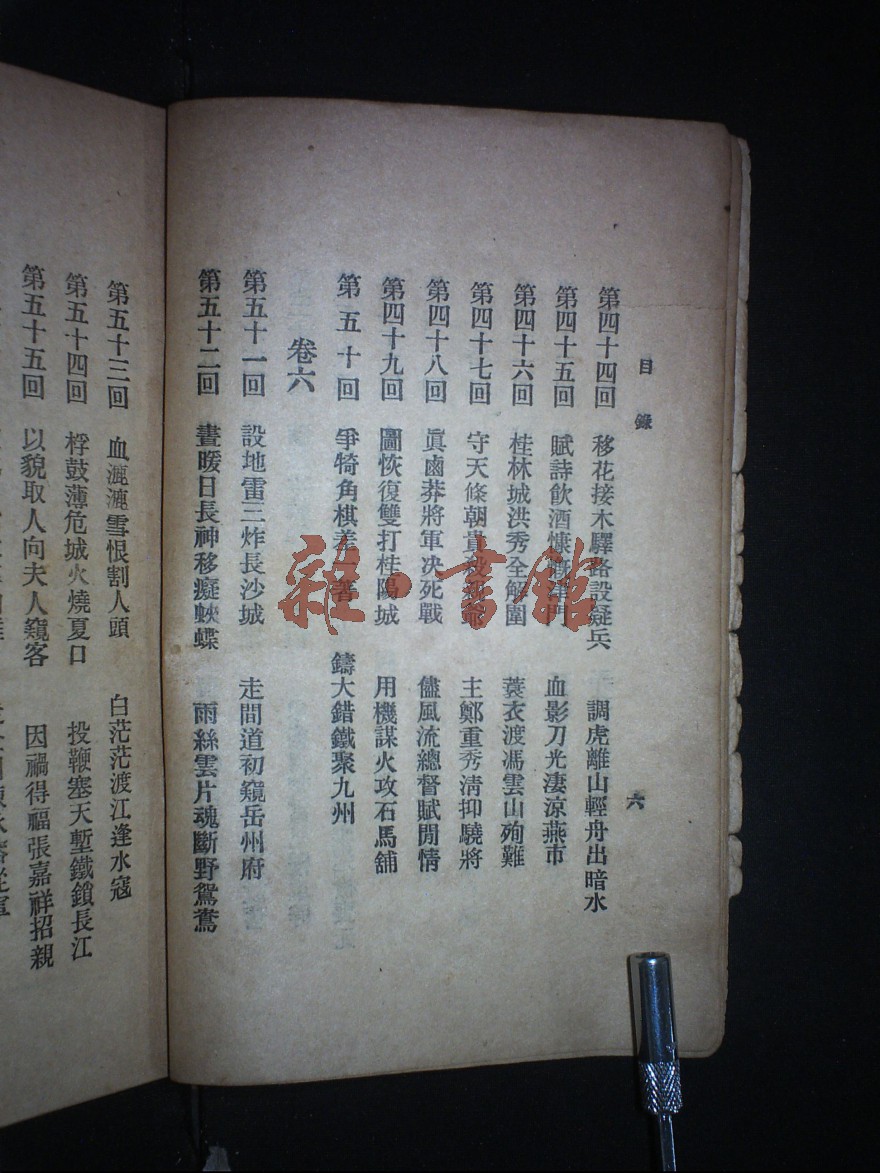 目錄
六
第四十四回 移花接木驛路設疑兵 調虎離山輕舟出暗水
第四十五回 賦詩飲酒慷 門 血影刀光淒涼燕市
第四十六回 桂林城洪秀全解圍 蓑衣渡馮雲山殉難
第四十七回 守天條朝貴殺 爺 主鄭重秀淸抑驍將
第四十八回 眞鹵莽將軍决死戰 儘風流總督賦閒情
第四十九回 圖恢復雙打桂陽城 用機謀火攻石馬舖
第五十回 爭犄角棋差一著 鑄大錯鐵聚九州
卷六
第五十一回 設地雷三炸長沙城 走間道初窺岳州府
第五十二回 晝暖日長神移癡蛺蝶 雨絲雲片魂斷野鴛鴦
第五十三回 血漉漉雪恨割人頭 白茫茫渡江逢水寇
第五十四回 桴鼓薄危城火燒夏口 投鞭塞天塹鐵鎖長江
第五十五回 以貌取人向夫人窺客 因禍得福張嘉祥招親
雜·書館